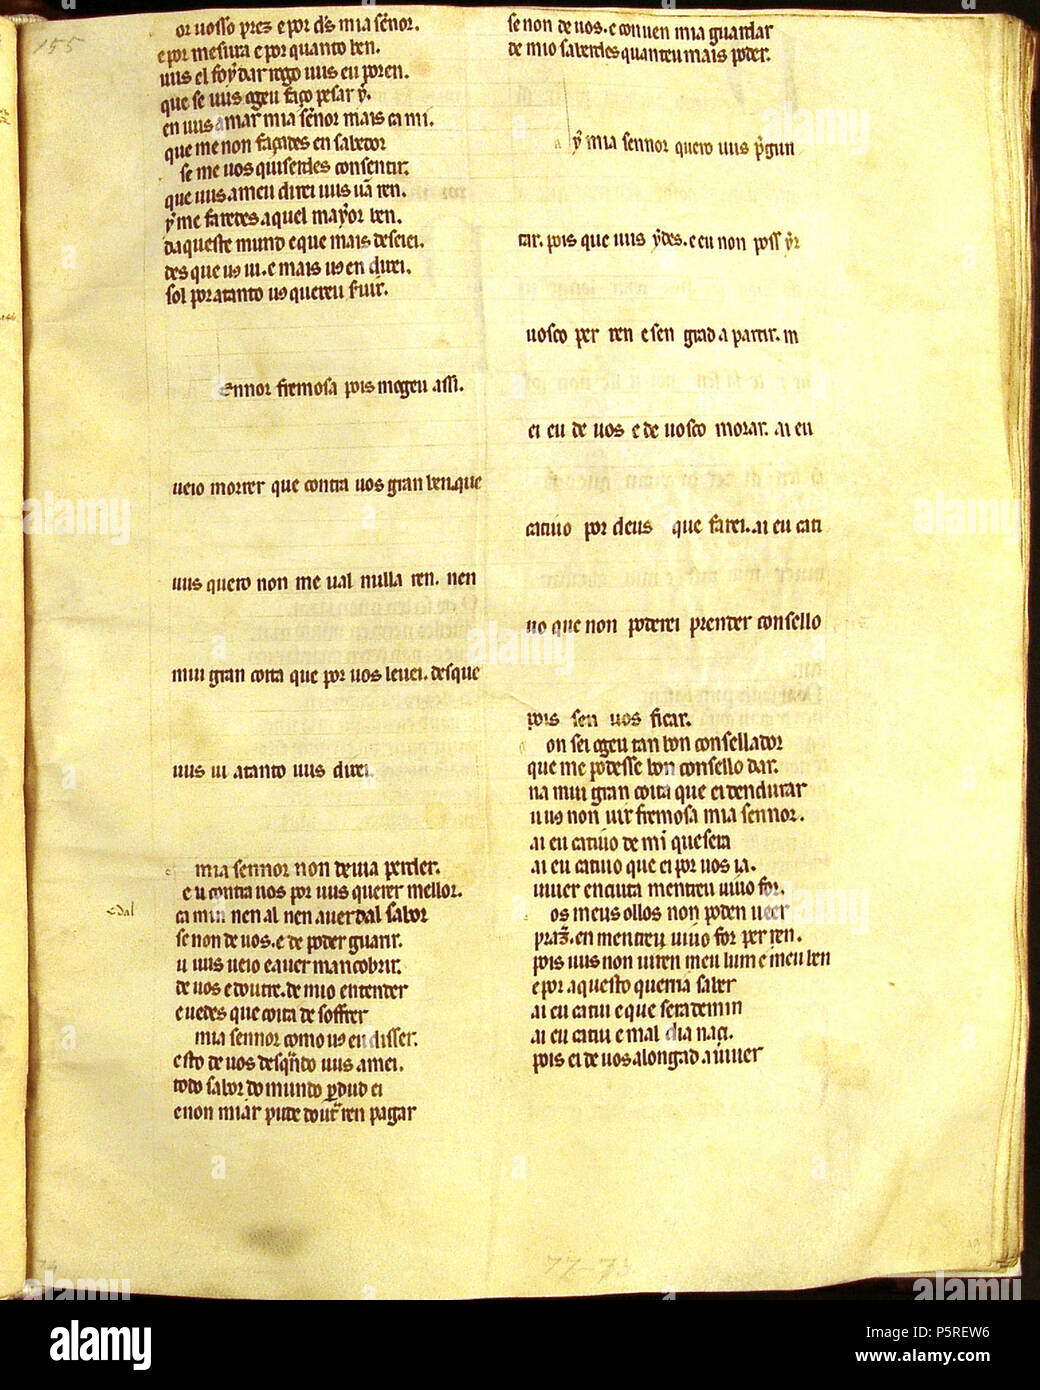 155
or uosso prez e por d̅s mia sẽnor.
e por mesura e por quanto ben.
uus el foy dar rogo uus eu por en.
que se uus ogeu faço pesar y̅.
en uus amar mia sẽnor mais ca mi.
que me non façades en sabedor
se me uos quiserdes consentir.
que uus ameu direi uus ũa ren.
y̅ me faredes aquel mayor ben.
daqueste mundo e que mais deseiei.
des que uꝯ ui. e mais uꝯ en direi.
sol por atanto uꝯ quereu fuir.
Ennor fremosa pois mogeu assi.
ueio morrer que contra uos gran ben. que
uus quero non me ual nulla ren. nen
mui gran coita que por uos leuei. desque
uus ui atanto uus direi
mia sennor non deuia perder.
eu contra uos por uus querer mellor.
ca min nen al nen auer dal sabor
edal
se non de uos. e de poder guarir.
u uus ueio e auer mancobrir.
de uos e doutre. de mio entender
e uedes que coita de soffrer
mia sennor como uꝯ eu disser.
esto de uos desq̃ndo uus amei.
todo sabor do mundo ꝑdud ei
e non miar pude dout̃ ren pagar
se non de uos. e conuen mia guardar
de mio saberdes quanteu mais poder.
y̅ mia sennor quero uus p̃gun
tar. pois que uus ydes. e eu non poss yr
uosco per ren e sen grad a partir. m
ei eu de uos e de uosco morar. ai eu
catiuo por deus que farei. ai eu cati
uo que non poderei prender consello
pois sen uos ficar.
on sei ogeu tan bon consellador
que me podesse bon consello dar.
na mui gran coita que ei dendurar
u uꝯ non uir fremosa mia sennor.
ai eu catiuo de mĩ que sera
ai eu catiuo que ei por uos ia.
uiuer en cuita mentreu uiuo for.
os meus ollos non poden ueer
praz̃. en mentreu uiuo for per ren.
pois uus non uiren meu lum e meu ben
e por aquesto querria saber
ai eu catiu e que sera de min
ai eu catiu e mal dia naci.
pois ei de uos alongad a uiuer
77-73
alamy
Image ID: P5REW6
www.alamy.com